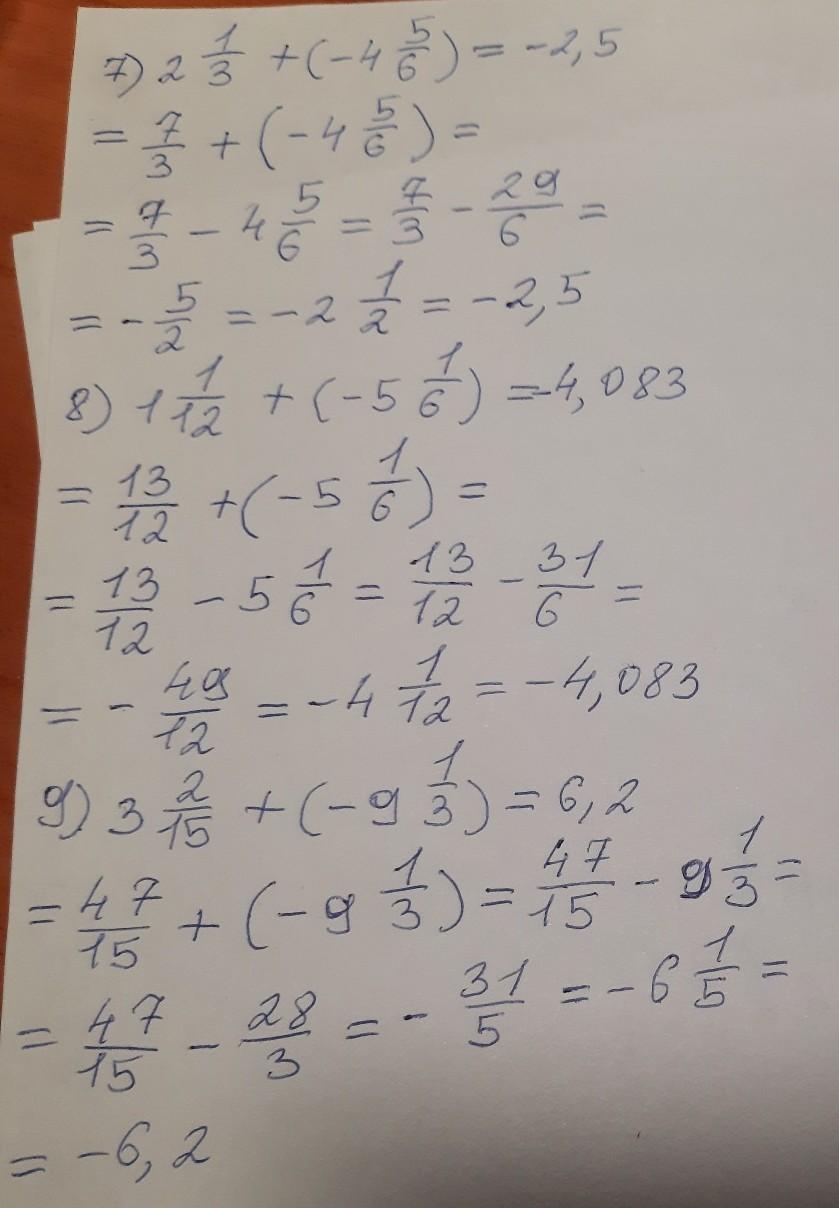 7) 2 1/3 + (-4 5/6) = -2,5
= 7/3 + (-4 5/6) =
= 7/3 - 4 5/6 = 7/3 - 29/6 =
= - 5/2 = -2 1/2 = -2,5
8) 1 1/12 + (-5 1/6) = -4,083
= 13/12 + (-5 1/6) =
= 13/12 - 5 1/6 = 13/12 - 31/6 =
= - 49/12 = -4 1/12 = -4,083
9) 3 2/15 + (-9 1/3) = 6,2
= 47/15 + (-9 1/3) = 47/15 - 9 1/3 =
= 47/15 - 28/3 = - 31/5 = -6 1/5 =
= -6,2